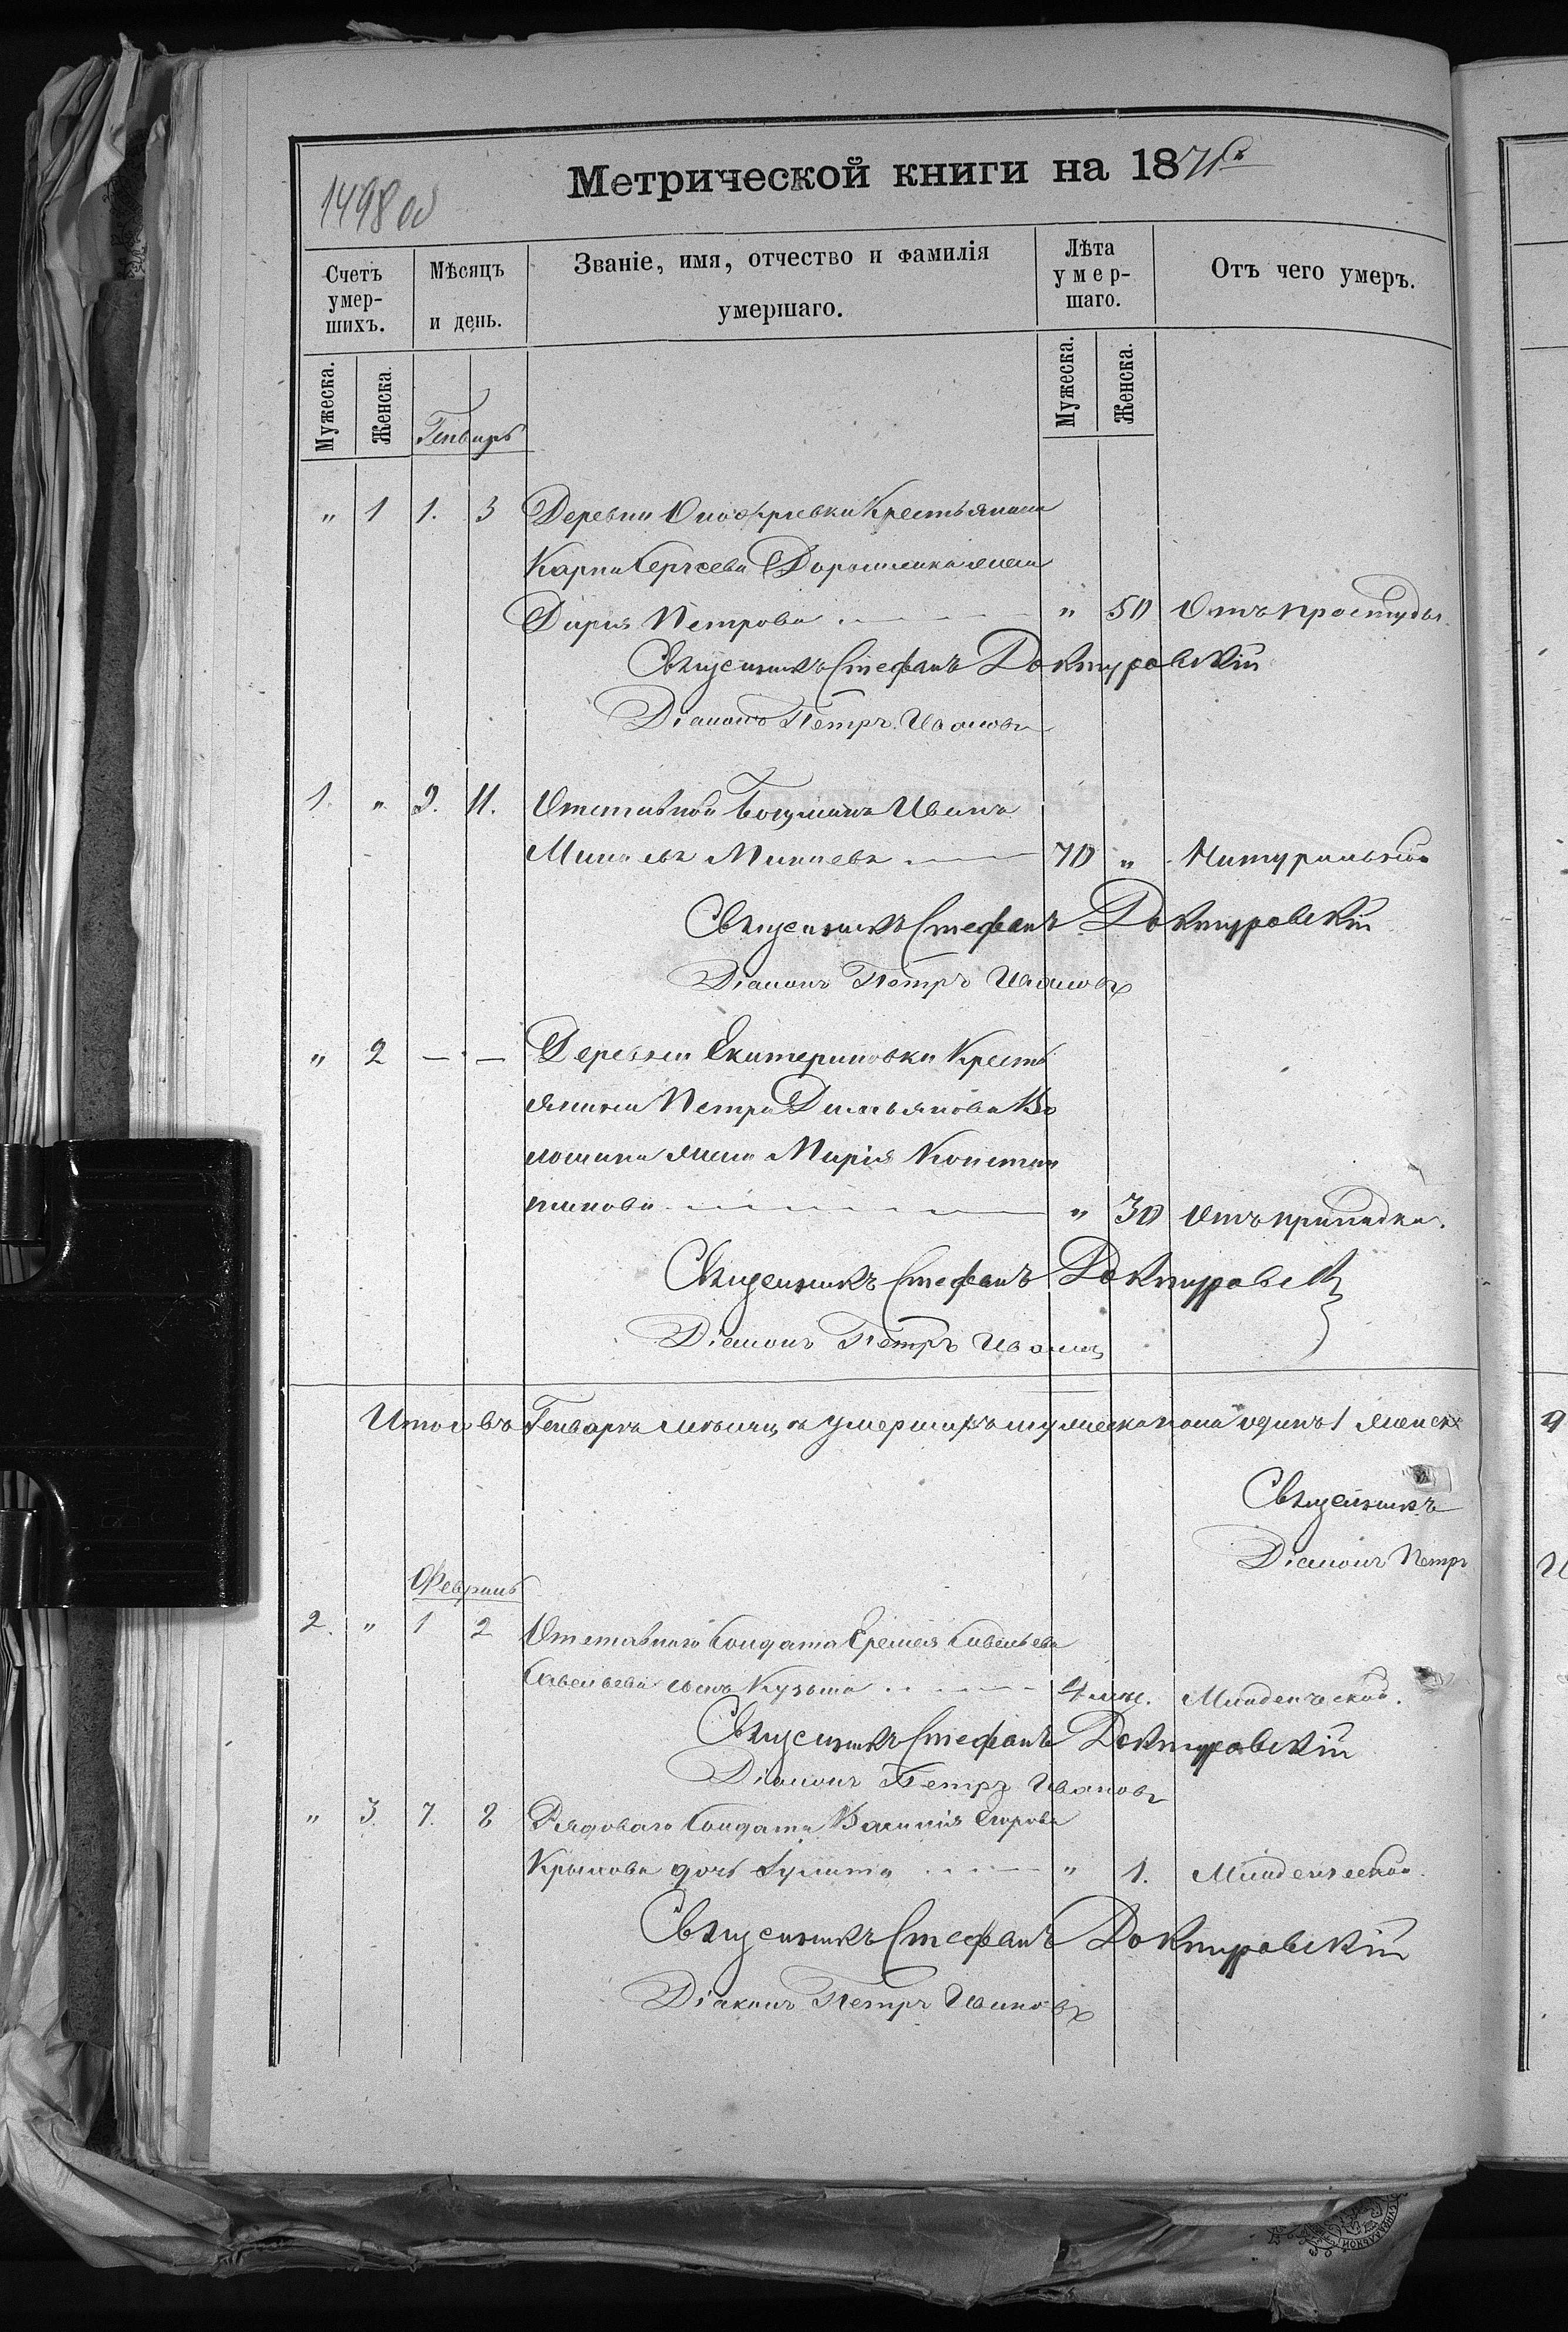 1498 об
Метрической книги на 1871 г.
Счетъ умер-шихъ.
Мѣсяцъ и день.
Званіе, имя, отчество и фамилія умершаго.
Лѣта умер-шаго.
Отъ чего умеръ.
Мужеска. Женска. Мужеска. Женска.
Генварь
" 1 1. 3 Деревни Онофріевки Крестьянина
Карпа Сергеева Дорошенка жена
Дарья Петрова " 50 Отъ простуды.
Священникъ Стефанъ Доктуровскій
Діаконъ Петръ Ивановъ
1. " 9. 11. Отставной Боцманъ Иванъ
Минаевъ Минаевъ 70 " Натуральною
Священникъ Стефанъ Доктуровскій
Діаконъ Петръ Ивановъ
" 2 — — Деревни Екатериновки Кресть
янина Петра Демьянова Во
лошина жена Марія Констан
тинова " 30 Отъ припадка.
Священникъ Стефанъ Доктуровск
Діаконъ Петръ Иванов
Итого въ Генварѣ мѣсяцѣ умершихъ мужеска пола одинъ 1 женск
Священникъ
Діаконъ Петръ
Февраль
2. " 1 2 Отставнаго Солдата Еремея Савельева
Савельева сынъ Кузьма 4 мѣс. Младенческой.
Священникъ Стефанъ Доктуровскій
Діаконъ Петръ Ивановъ
" 3. 7. 8 Рядоваго Солдата Василія Егорова
Крылова дочь Іулита " 1. Младенческой.
Священникъ Стефанъ Доктуровскій
Діаконъ Петръ Ивановъ